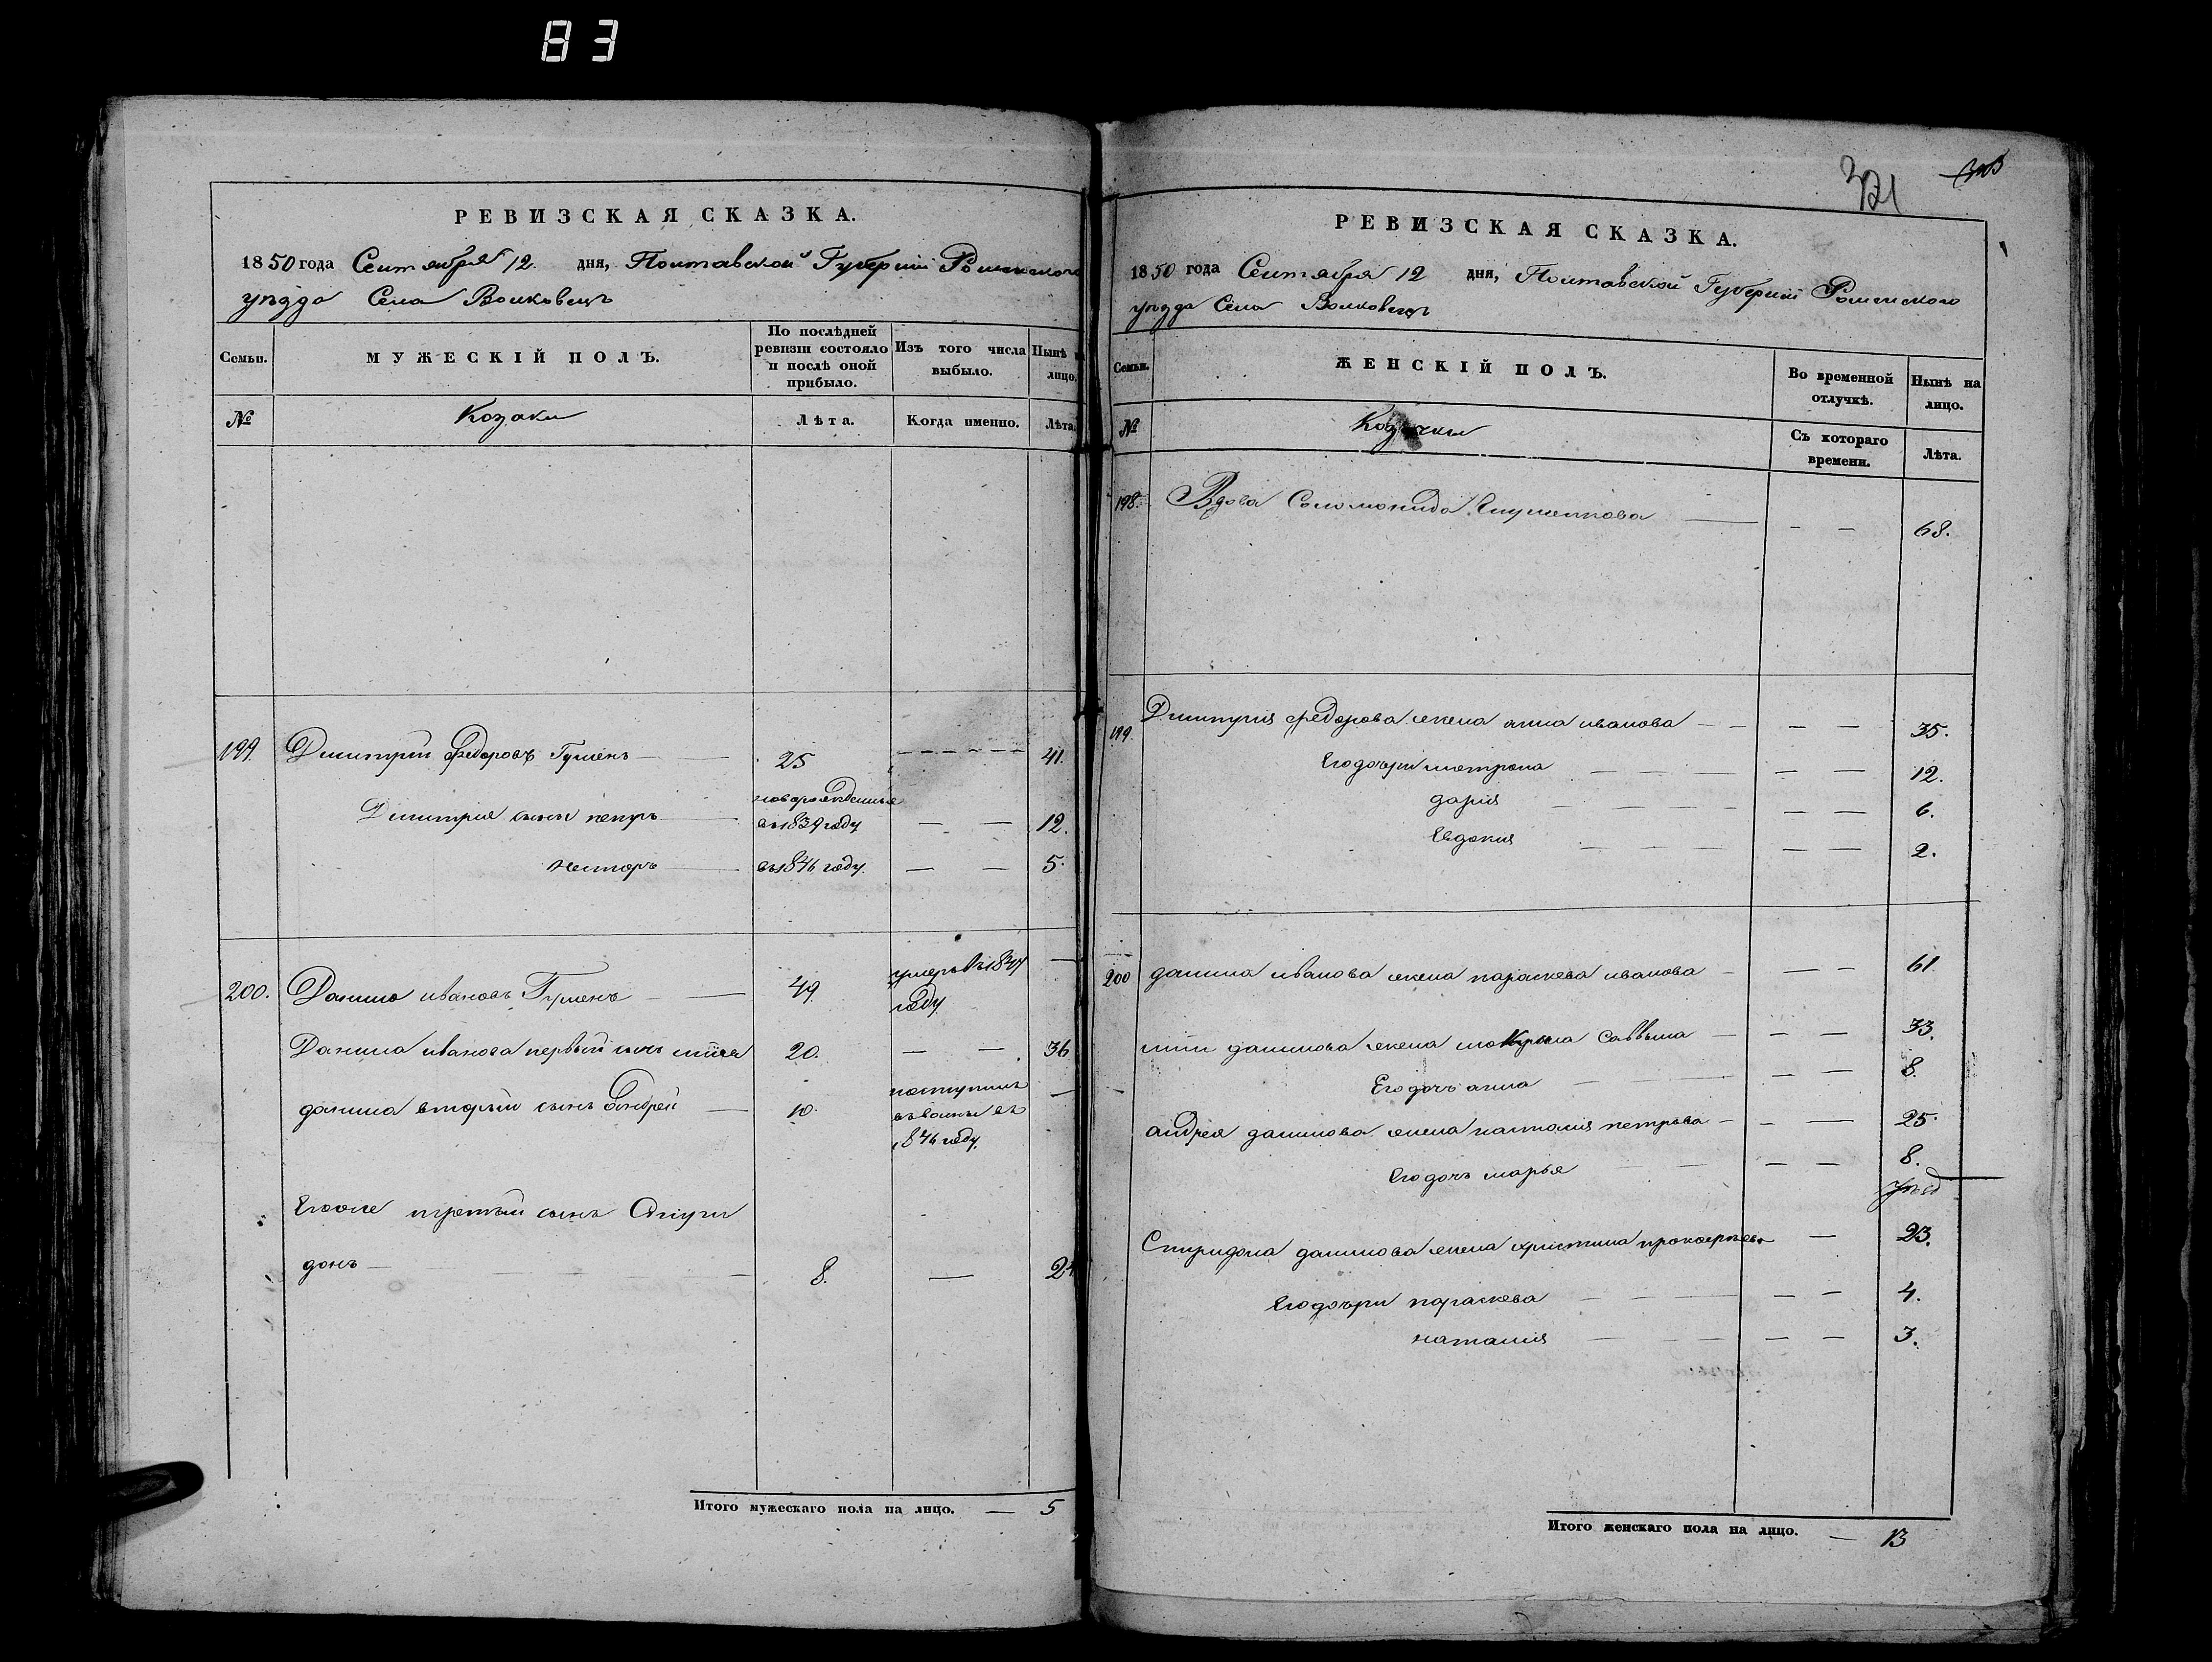 83
РЕВИЗСКАЯ СКАЗКА.
1850 года Сентября 12. дня, Полтавской Губерніи Роменского
уѣзда Села Волковецъ
Семьи.
МУЖЕСКІЙ ПОЛЪ.
По послѣдней
ревизіи состояло
и послѣ оной
прибыло.
Изъ того числа
выбыло.
Нынѣ
лицо.
№
Козаки
Лѣта.
Когда именно.
Лѣта.
199. Дмитрій Федоровъ Гуменъ 25 41.
новорожденные
Дмитрія сыны петръ въ 1839 году 12.
несторъ въ 1846 году. 5.
200. Данило ивановъ Гуменъ 49 умеръ въ 1847
году.
Данила иванова первый сынъ 20. 36
данила вторый сынъ Андрей 10. поступилъ
1846 году.
Егоже третий сынъ Спири
донъ 8. 24
Итого мужескаго пола на лицо. 5
321
РЕВИЗСКАЯ СКАЗКА.
1850 года Сентября 12 дня, Полтавской Губерніи Роменского
уѣзда Села Волковецъ
Семьи.
ЖЕНСКІЙ ПОЛЪ.
Во временной
отлучкѣ.
Нынѣ на
лицо.
№
Козачки
Съ котораго
времени.
Лѣта.
198. Вдова Соломонида 68.
199. Дмитрія Федорова жена анна иванова 35.
Его дочери матрона 12.
дарія 6.
Евдокія 2.
200 данила иванова жена параскева иванова 61.
данилова жена Саввына 33.
Его дочь анна 8.
андрея данилова жена наталія петрова 25.
Его дочь марья 8.
Спиридона данилова жена христина прокофьева 23.
Его дочери параскева 4.
наталия 3.
Итого женскаго пола на лицо. 13